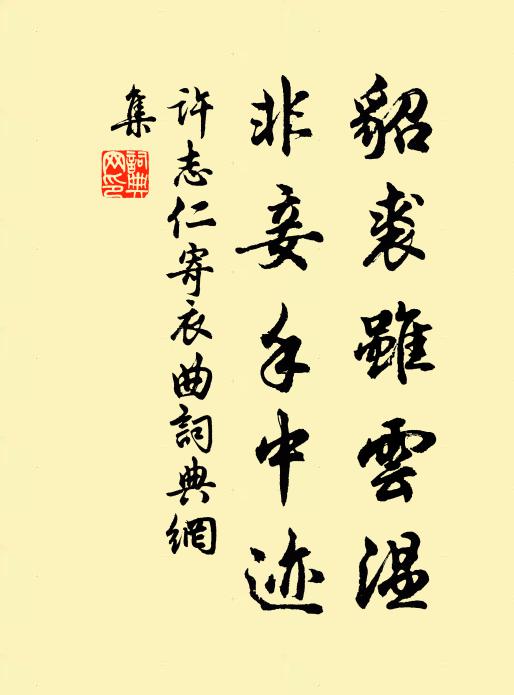 貂裘雖雲溫
非妾手中迹
許志仁寄衣曲詞典網
集
詞典
网印